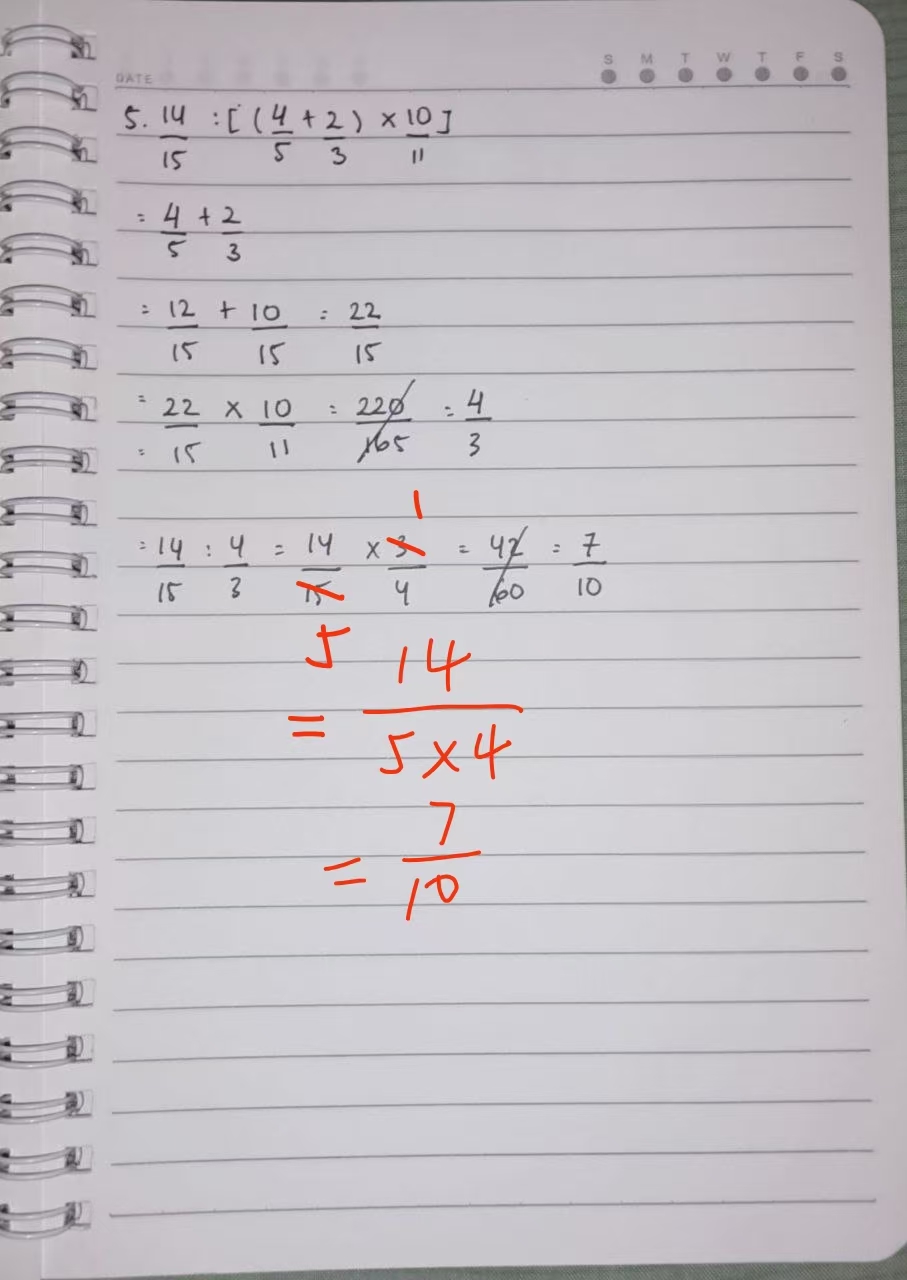 DATE
S M T W T F S
5. 14/15 : [ ( 4/5 + 2/3 ) × 10/11 ]
= 4/5 + 2/3
= 12/15 + 10/15 = 22/15
= 22/15 × 10/11 = 220/165 = 4/3
= 14/15 : 4/3 = 14/15 × 3/4 = 42/60 = 7/10
1
5
= 14/5×4
= 7/10